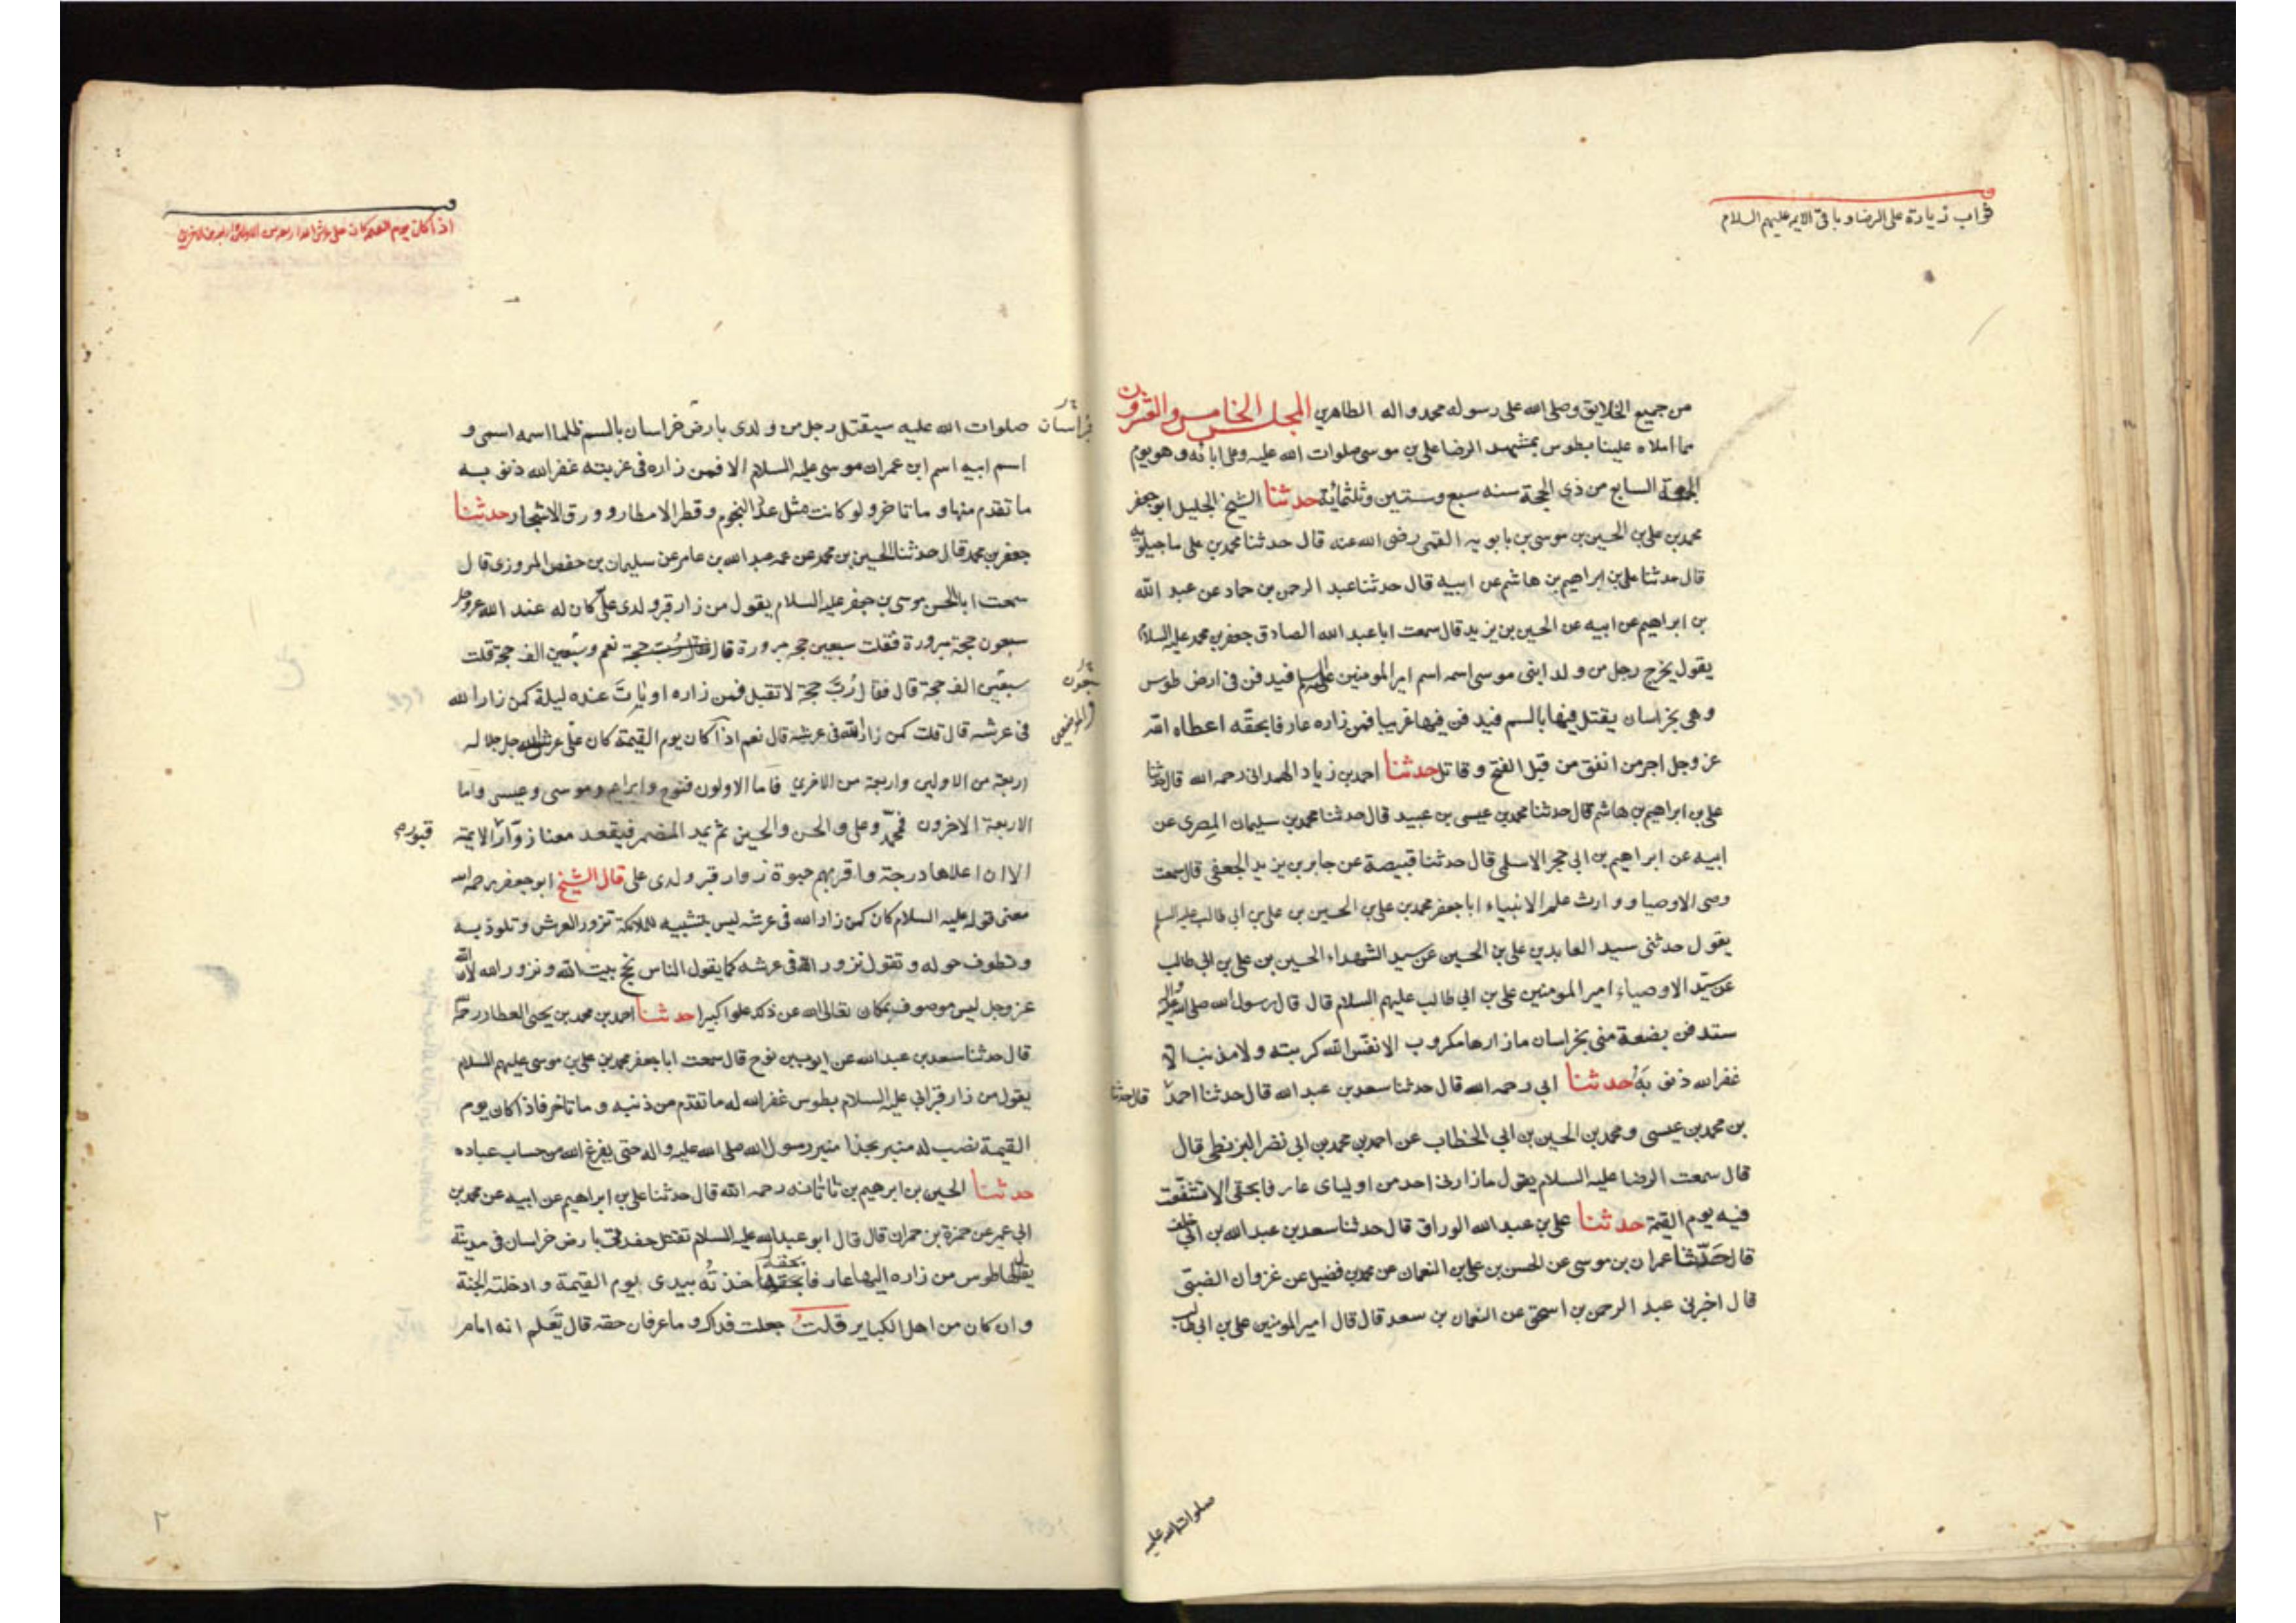 ثواب زيادة على الرضا و باقى الايمه عليهم السلام
من جميع الخلايق وصلى الله على رسوله محمد واله الطاهرين المجلس الخامس والعشرون
مما املاه علينا بطوس بمشهد الرضا على بن موسى صلوات الله عليه وعلى ابائه وهو يوم
الجمعة السابع من ذى الحجة سنه سبع وستين وثلثمائة حدثنا الشيخ الجليل ابو جعفر
محمد بن على بن الحسين بن موسى بن بابويه القمى رضى الله عنه قال حدثنا محمد بن على ماجيلويه
قال حدثنا على بن ابراهيم بن هاشم عن ابيه قال حدثنا عبد الرحمن بن حماد عن عبد الله
بن ابراهيم عن ابيه عن الحسين بن يزيد قال سمعت ابا عبد الله الصادق جعفر بن محمد عليه السلام
يقول يخرج رجل من ولد ابنى موسى اسمه اسم امير المومنين عليه السلم فيدفن فى ارض طوس
وهى بخراسان يقتل فيها بالسم فيدفن فيها غريبا فمن زاره عارفا بحقه اعطاه الله
عز وجل اجر من انفق من قبل الفتح وقاتل حدثنا احمد بن زياد الهمدانى رحمه الله قال حدثنا
على بن ابراهيم بن هاشم قال حدثنا محمد بن عيسى بن عبيد قال حدثنا محمد بن سليمان المصرى عن
ابيه عن ابراهيم بن ابى حجر الاسلمى قال حدثنا قبيصة عن جابر بن يزيد الجعفى قال سمعت
وصى الاوصيا ووارث علم الانبياء ابا جعفر محمد بن على بن الحسين بن على بن ابى طالب عليه السلم
يقول حدثنى سيد العابدين على بن الحسين عن سيد الشهداء الحسين بن على بن ابى طالب
عن سيد الاوصياء امير المومنين على بن ابى طالب عليهم السلام قال قال رسول الله صلى الله عليه واله
ستدفن بضعة منى بخراسان ما زارها مكروب الا نفس الله كربته ولا مذنب الا
غفر الله ذنوبه حدثنا ابى رحمه الله قال حدثنا سعد بن عبد الله قال حدثنا احمد
قال حدثنا
بن محمد بن عيسى ومحمد بن الحسين بن ابى الخطاب عن احمد بن محمد بن ابى نصر البزنطى قال
قال سمعت الرضا عليه السلام يقول ما زارنى احد من اولياى عارفا بحقى الا تشفعت
فيه يوم القيمة حدثنا على بن عبد الله الوراق قال حدثنا سعد بن عبد الله بن ابى خلف
قال حدثنا عمران بن موسى عن الحسن بن على بن النعمان عن محمد بن فضيل عن غزوان الضبى
قال اخبرنى عبد الرحمن بن اسحق عن النعمان بن سعد قال قال امير المومنين على بن ابى طالب
صلوات الله عليه
اذا كان يوم القيمة كان على عرش الله اربعة من الاولين واربعة من الاخرين
صلوات الله عليه سيقتل رجل من ولدى بارض خراسان بالسم ظلما اسمه اسمى و
خراسان
اسم ابيه اسم ابن عمران موسى عليه السلام الا فمن زاره فى غربته غفر الله ذنوبه
ما تقدم منها وما تاخر ولو كانت مثل عدد النجوم وقطر الامطار وورق الاشجار حدثنا
جعفر بن محمد قال حدثنا الحسين بن محمد عن عمه عبد الله بن عامر عن سليمان بن حفص المروزى قال
سمعت ابا الحسن موسى بن جعفر عليه السلام يقول من زار قبر ولدى على كان له عند الله عز وجل
سبعون حجة مبرورة فقلت سبعين حجه مبرورة قال فقال رب حجة نعم وسبعين الف حجة قلت
سبعين الف حجة قال فقال رب حجة لا تقبل فمن زاره او بات عنده ليلة كمن زار الله
سبعون
فى عرشه قال قلت كمن زار الله فى عرشه قال نعم اذا كان يوم القيمة كان على عرش الله جل جلاله
اربعة من الاولين واربعة من الاخرين فاما الاولون فنوح وابراهيم وموسى وعيسى واما
الاربعة الاخرون فمحمد وعلى والحسن والحسين ثم يمد المضمر فيقعد معنا زوار الايمة
قبور
الا ان اعلاها درجة واقربهم حبوة زوار قبر ولدى على قال الشيخ ابو جعفر رحمه الله
معنى قوله عليه السلام كان كمن زار الله فى عرشه ليس بتشبيه للملائكة تزور العرش وتلوذ به
وتطوف حوله وتقول نزور الله فى عرشه كما يقول الناس نحج بيت الله ونزور الله لان الله
عز وجل ليس موصوف بمكان تعالى الله عن ذلك علوا كبيرا حدثنا احمد بن محمد بن يحيى العطار رحمه الله
قال حدثنا سعد بن عبد الله عن ايوب بن نوح قال سمعت ابا جعفر محمد بن على بن موسى عليهم السلام
يقول من زار قبر ابى عليه السلام بطوس غفر الله له ما تقدم من ذنبه وما تاخر فاذا كان يوم
القيمة نصب له منبر بحذا منبر رسول الله صلى الله عليه واله حتى يفرغ الله من حساب عباده
حدثنا الحسين بن ابرهيم بن ناتانه رحمه الله قال حدثنا على بن ابراهيم عن ابيه عن محمد بن
ابى عمير عن حمزة بن حمران قال قال ابو عبد الله عليه السلام تقتل حفدتى بارض خراسان فى مدينة
يقال لها طوس من زاره اليها عارفا بحقه اخذته بيدى يوم القيمة وادخلته الجنة
وان كان من اهل الكباير قلت جعلت فداك وما عرفان حقه قال تعلم انه امام
٢